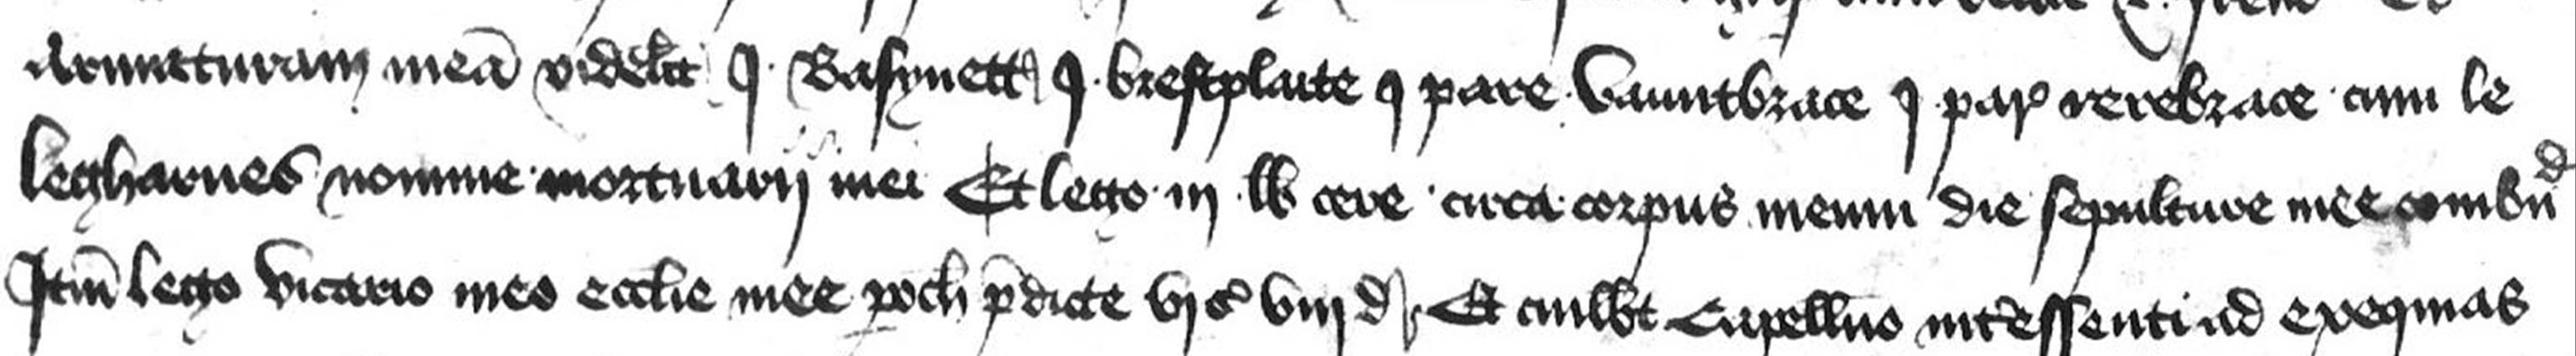 Armaturam meā videlt j Basynett j brestplaite j pare Vauntbrace j par rerebrace cum le
legharnes nomine mortuarij mei Et lego iij lb cere circa corpus meum die sepulture mee combur̄d
Itm̄ lego Vicario meo ecclie mee poch p̄dicte vj s viij d Et cuilbt Capellno int'essenti ad exequias